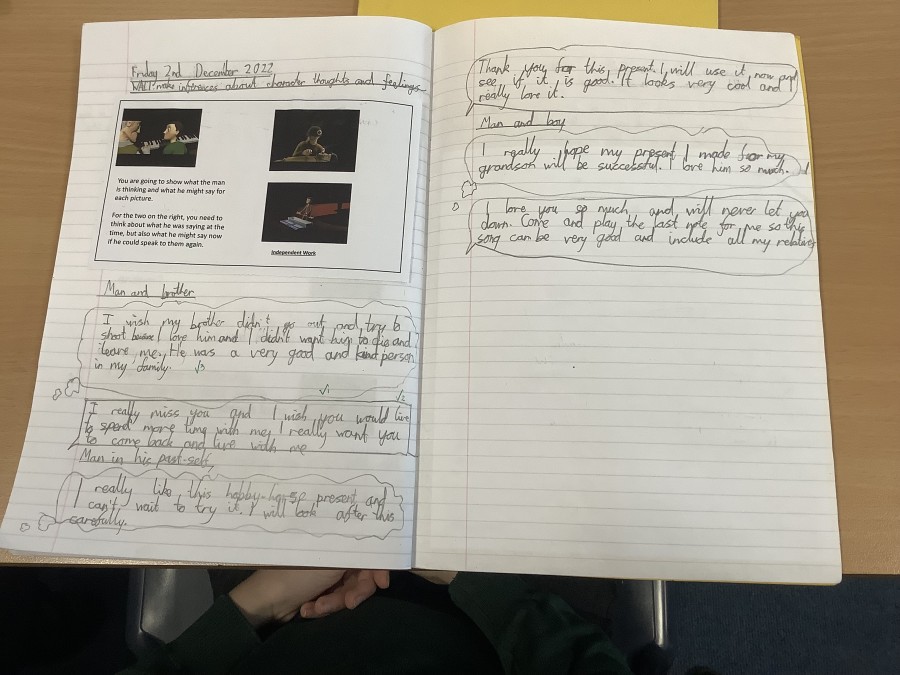 Friday 2nd December 2022
WALT: make infrences about character thoughts and feelings
You are going to show what the man
is thinking and what he might say for
each picture.
For the two on the right, you need to
think about what he was saying at the
time, but also what he might say now
if he could speak to them again.
Independent Work
Man and brother
I wish my brother didn't go out and try to
shoot because I love him and I didn't want him to die and
leave me. He was a very good and kind person
in my family. √3
√1 √2
I really miss you and I wish you would live
to spend more time with me, I really want you
to come back and live with me
Man in his past-self
I really like this hobby-horse present and
can't wait to try it. I will look after this
carefully.
Thank you for this present. I will use it now and
see if it is good. It looks very cool and I
really love it.
Man and boy
I really hope my present I made for my
grandson will be successful. I love him so much.
I love you so much and will never let you
down. Come and play the last note for me so this
song can be very good and include all my relatives